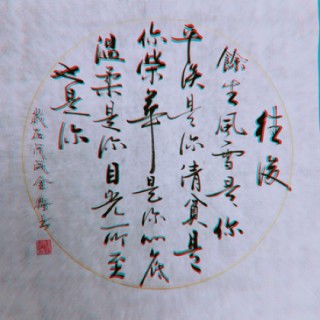 往後
餘生風雪是你
平淡是你清貧是
你榮華是你心底
溫柔是你目光所至
也是你
歲在戊戌金